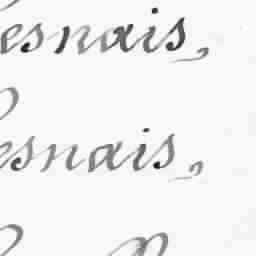 esnais,
esnais,